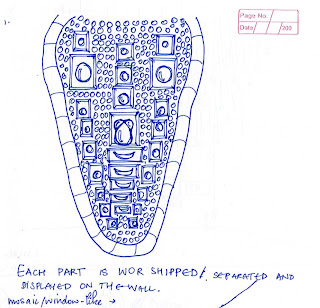 1.
Page No.
Date / / 200
EACH PART IS WOR SHIPPED/ SEPARATED AND
DISPLAYED ON THE WALL.
mosaic/window-like →